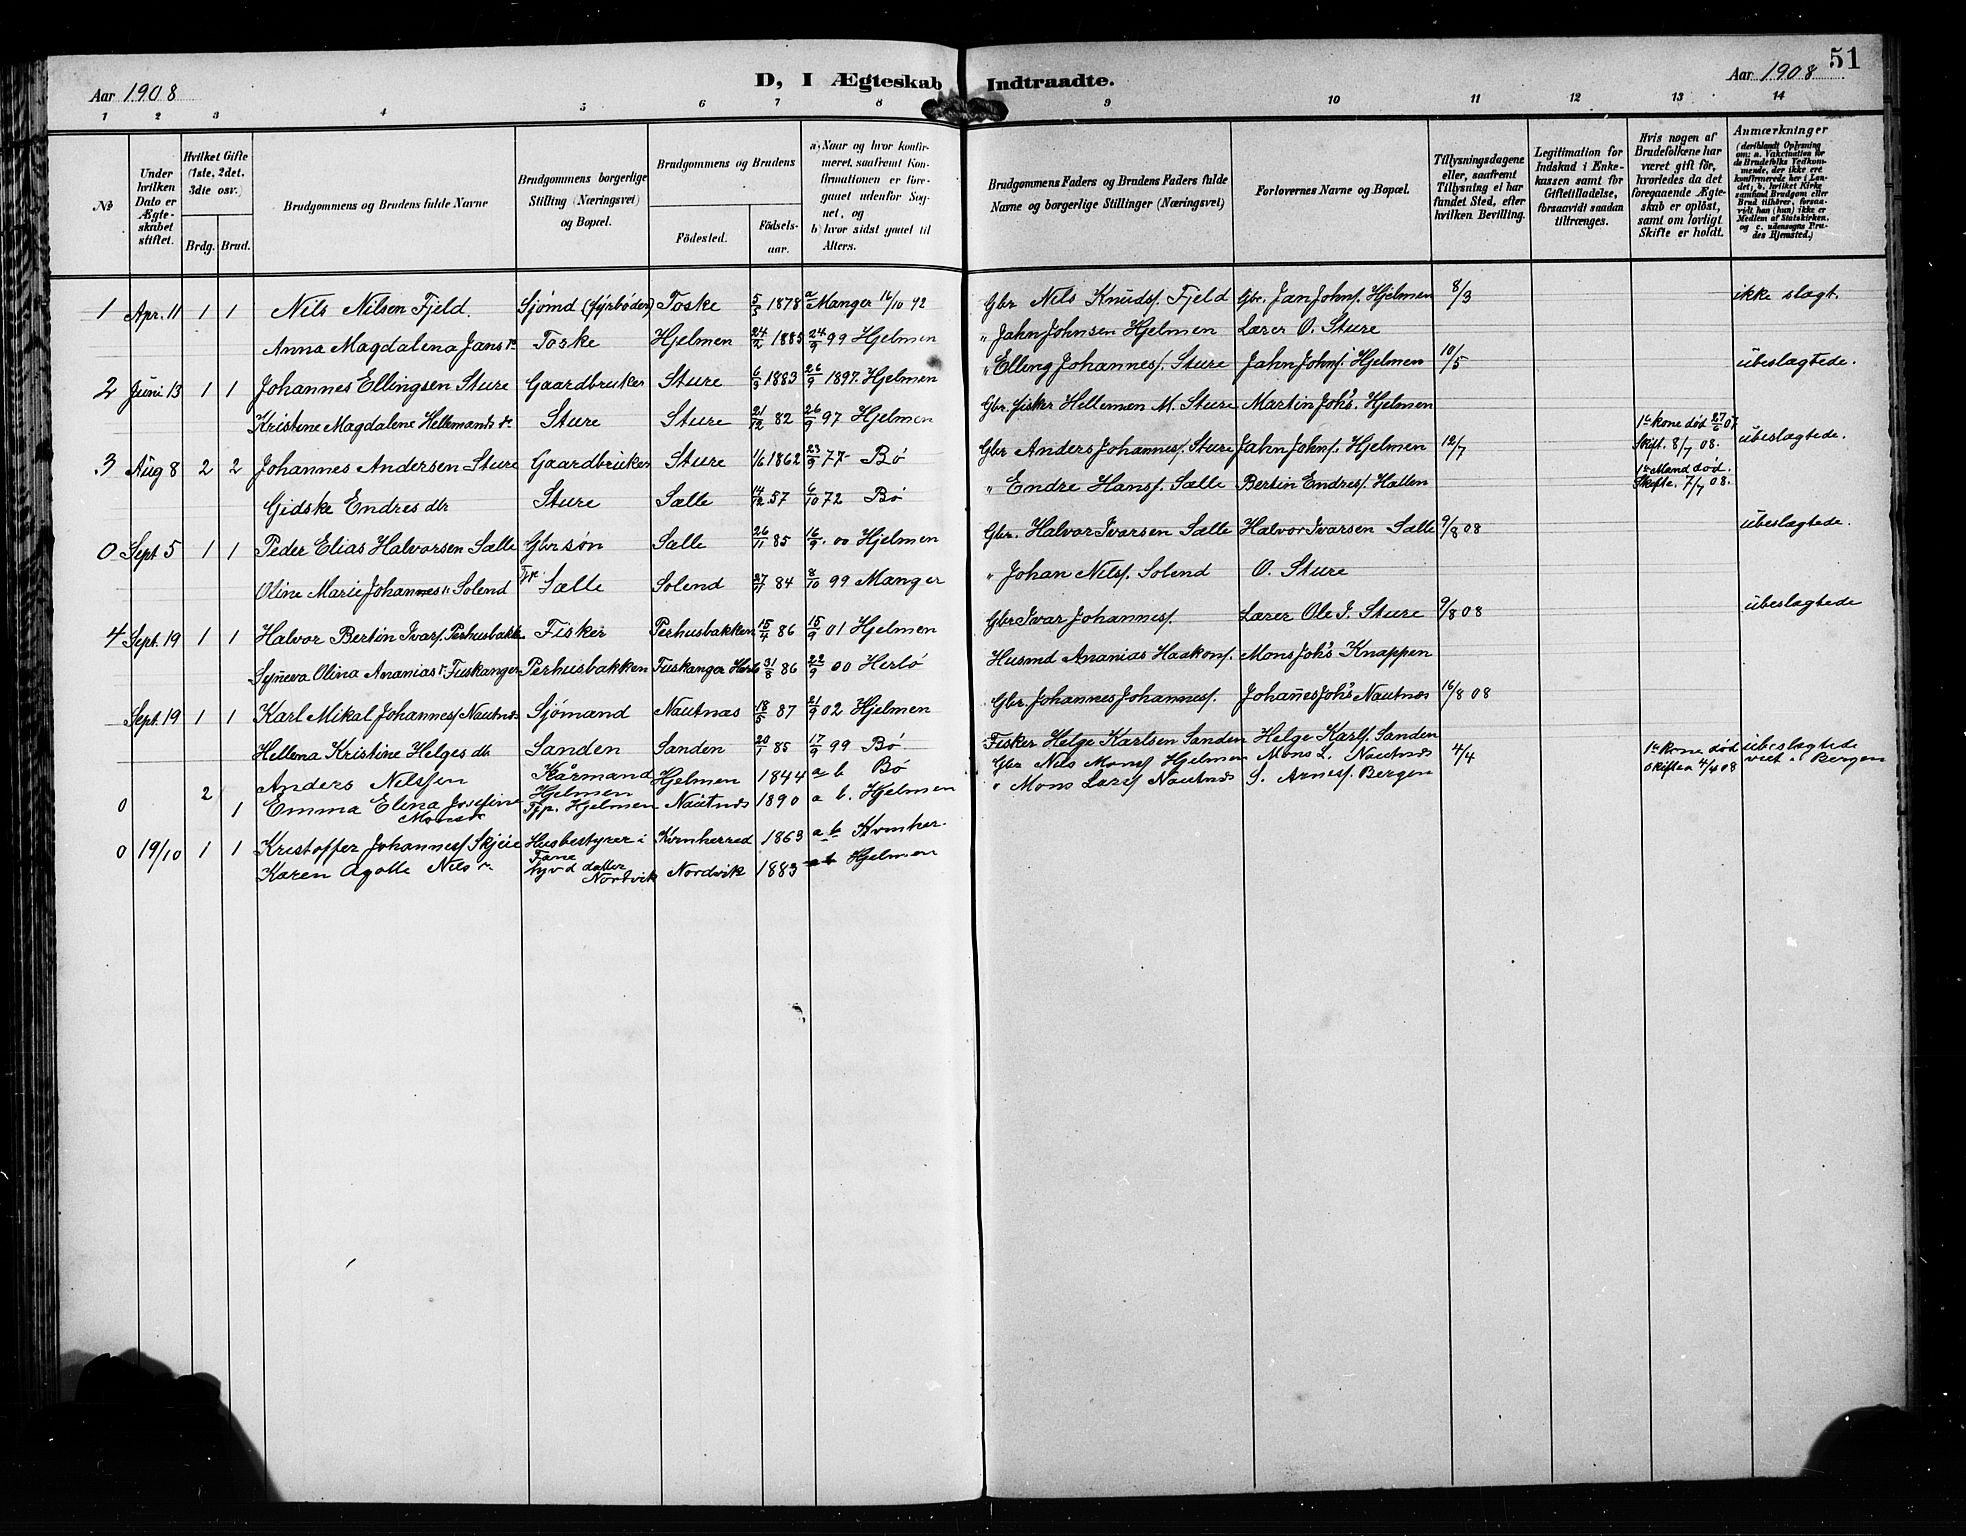 51
D, I Ægteskab Indtraadte.
Aar 1908
Aar 1908
1 2 3 4 5 6 7 8 9 10 11 12 13 14
No
Under hvilken Dato er Ægteskabet stiftet.
Hvilket Gifte (1ste, 2det, 3die osv.)
Brdg. Brud.
Brudgommens og Brudens fulde Navne
Brudgommens borgerlige Stilling (Næringsvei) og Bopæl.
Brudgommens og Brudens
Födested.
Födselsaar.
a) Naar og hvor konfirmeret, saafremt Konfirmationen er foregaaet udenfor Sognet, og
b) hvor sidst gaaet til Alters.
Brudgommens Faders og Brudens Faders fulde Navne og borgerlige Stillinger (Næringsvei)
Forlovernes Navne og Bopæl.
Tillysningsdagene eller, saafremt Tillysning ei har fundet Sted, efter hvilken Bevilling.
Legitimation for Indskud i Enkekassen samt for Giftetilladelse, forsaavidt saadan tiltrænges.
Hvis nogen af Brudefolkene har været gift för, hvorledes da det foregaaende Ægteskab er oplöst, samt om lovligt Skifte er holdt.
Anmærkninger (deriblandt Oplysning om: a. Vakcination for de Brudefolks Vedkommende, der ikke ere konfirmerede her i Landet; b. hvilket Kirkesamfund Brudgom eller Brud tilhörer, forsaavidt han (hun) ikke er Medlem af Statskirken, og c. udensogns Brudes Hjemsted.)
1 Apr. 11 1 1 Nils Nilsen Fjeld. Sjømd (fyrbøder) Toske 5/3 1878 a Manger 16/10 92 Gbr Nils Knuds. Fjeld Gbr. Jan Johns. Hjelmen 8/3 ikke slægt.
Anna Magdalena Jans dr Toske Hjelmen 24/2 1885 24/9 99 Hjelmen " Jahn Johnsen Hjelmen Lærer O. Sture
2 Juni 13 1 1 Johannes Ellingsen Sture Gaardbruker Sture 6/3 1883 26/9 1897. Hjelmen " Elling Johannes. Sture Jahn Johns. Hjelmen 10/5 ubeslægtede.
Kristine Magdalene Hellemands dr Sture Sture 21/12 82 26/9 97 Hjelmen Gbr. fisker Hellemen M. Sture Martin Joh's. Hjelmen
3 Aug 8 2 2 Johannes Andersen Sture Gaardbruker Sture 1/6 1862 23/9 77 Bø Gbr Anders Johannes. Sture Jahn Johns. Hjelmen 12/7 1ste kone død 27/6 07 Skift. 8/7 08. ubeslægtede.
Gidske Endres dtr Sture Sælle 14/12 57 6/10 72 Bø " Endre Hans. Sælle Bertin Endres. Hatlen 1ste Mand død. Skifte. 7/7 08.
0 Sept 5 1 1 Peder Elias Halvorsen Sælle Gbr søn Sælle 26/11 85 16/9 00 Hjelmen Gbr. Halvor Ivarsen Sælle Halvor Ivarsen Sælle 9/8 08 ubeslægtede.
Oline Marie Johannes " Solend Sælle Solend 84 8/10 99 Manger " Johan Nils. Solend O. Sture
4 Sept. 19 1 1 Halvor Bertin Ivars. Perhusbakke Fisker Perhusbakken 15/4 86 15/9 01 Hjelmen Gbr Ivar Johannes. Lærer Ole J. Sture 9/8 08 ubeslægtede
Syneva Olina Ananias dr Fuskanger Perhusbakken Fuskanger Herlø 31/8 86 22/9 00 Herlø Husmd Ananias Haakons. Mons Joh's Knappen
Sept. 19 1 1 Karl Mikal Johannes. Nautnæs Sjømand Nautnæs 18/5 87 21/9 02 Hjelmen Gbr. Johannes Johannes. Johannes Joh's Nautnæs 16/8 08
Hellena Kristine Helges dtr Sanden Sanden 20/1 85 17/9 99 Bø Fisker Helge Karlsen Sanden Helge Karls. Sanden
2 Anders Nilssen Kårmand Hjelmen Hjelmen 1844 a b Bø Gbr Nils Mons. Hjelmen Mons L. Nautnæs 4/4 1ste kone død Skiftea 4/4 08 ubeslægtede viet i Bergen
0 1 Emma Elina Josefine Monsdr Tjp. Hjelmen Nautnæs 1890 a b. Hjelmen " Mons Lars. Nautnæs S. Arnes. Bergen
0 19/10 1 1 Kristoffer Johannes. Skjeie Husbestyrer i Fane Kvinherred 1863 a b Kvinher.
Karen Agotte Nils dr datter Nordvik Nordvik 1883 Hjelmen